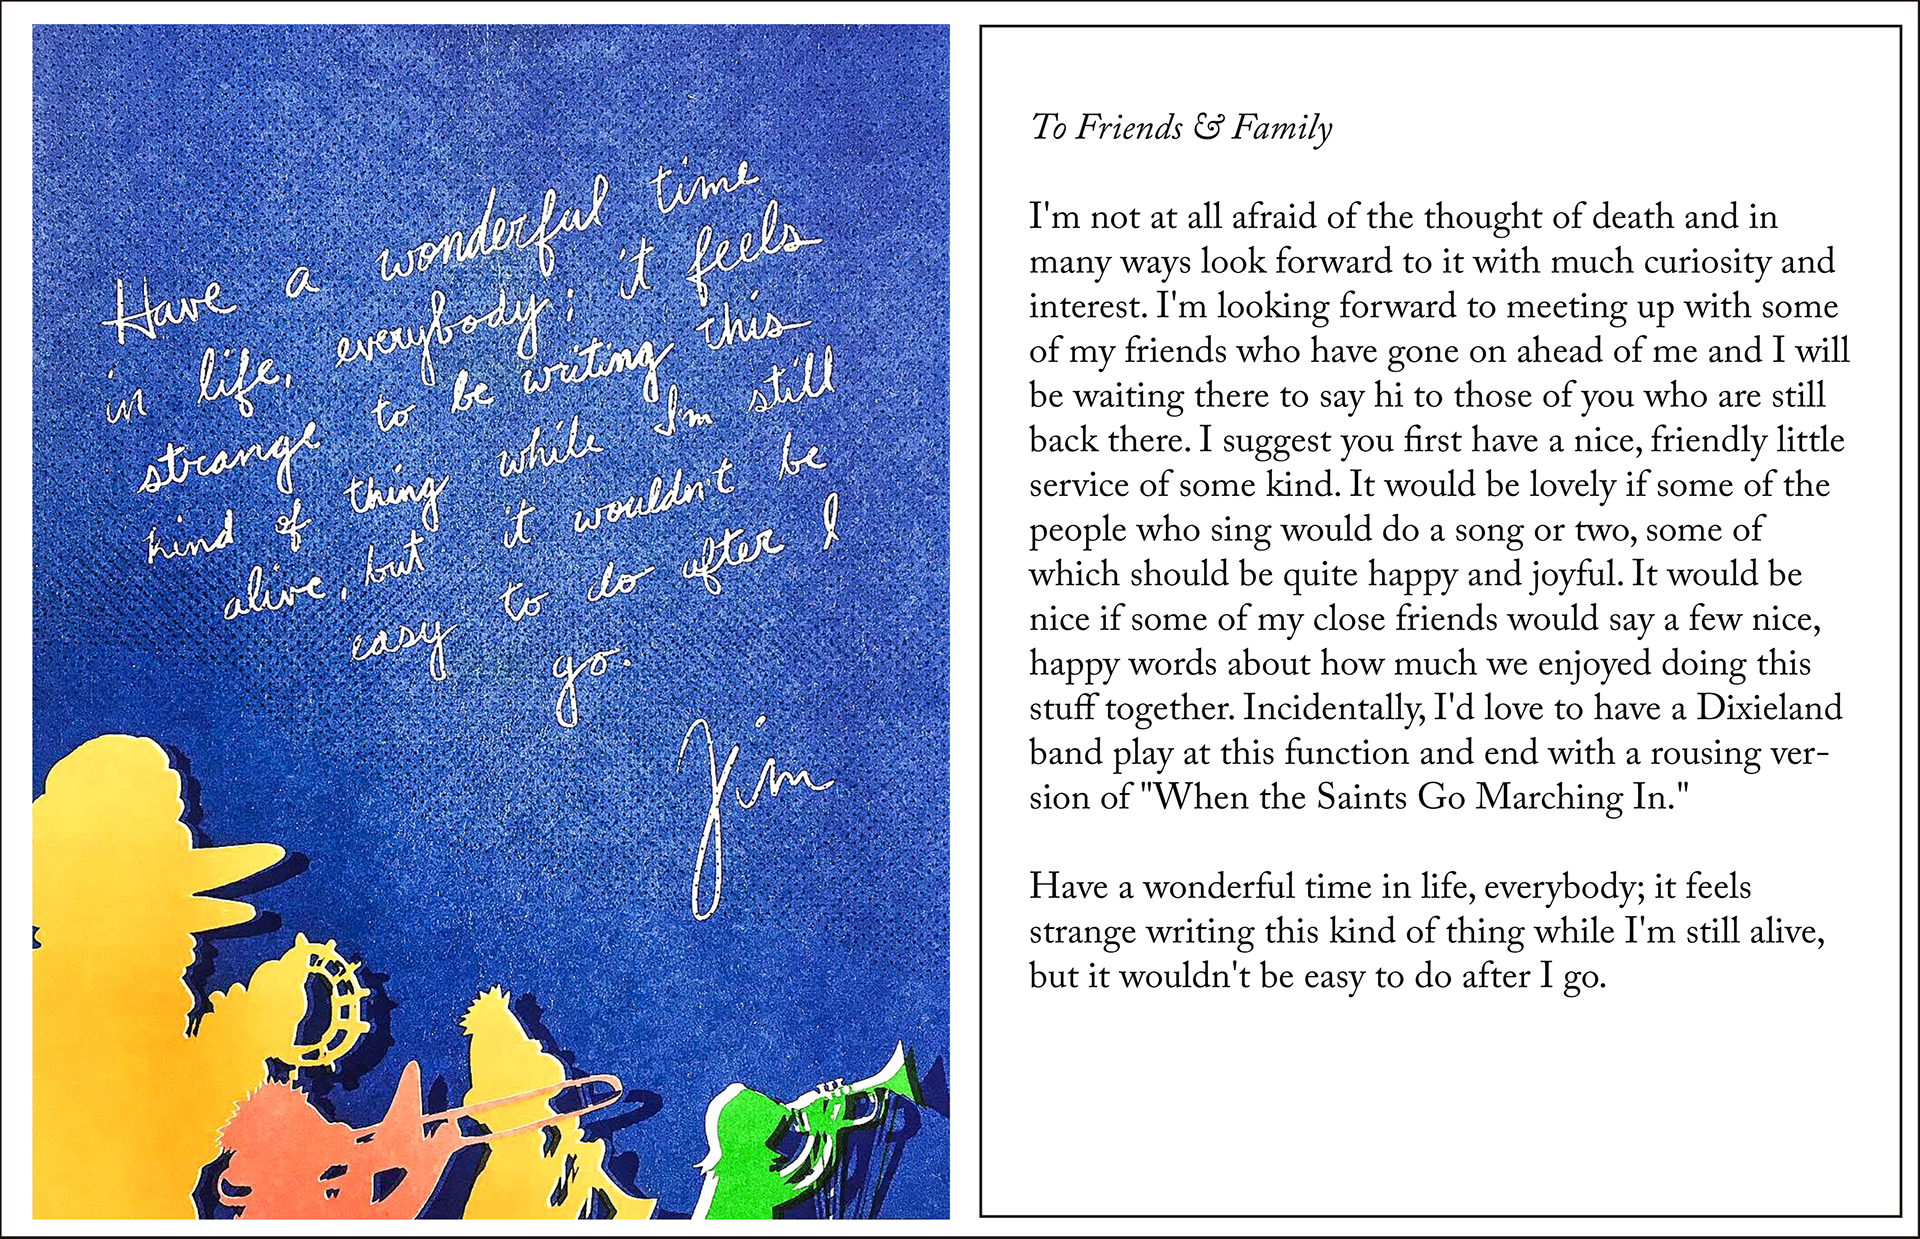 Have a wonderful time
in life, everybody; it feels
strange to be writing this
kind of thing while I'm still
alive, but it wouldn't be
easy to do after I
go.
Jim
To Friends & Family
I'm not at all afraid of the thought of death and in
many ways look forward to it with much curiosity and
interest. I'm looking forward to meeting up with some
of my friends who have gone on ahead of me and I will
be waiting there to say hi to those of you who are still
back there. I suggest you first have a nice, friendly little
service of some kind. It would be lovely if some of the
people who sing would do a song or two, some of
which should be quite happy and joyful. It would be
nice if some of my close friends would say a few nice,
happy words about how much we enjoyed doing this
stuff together. Incidentally, I'd love to have a Dixieland
band play at this function and end with a rousing ver-
sion of "When the Saints Go Marching In."
Have a wonderful time in life, everybody; it feels
strange writing this kind of thing while I'm still alive,
but it wouldn't be easy to do after I go.